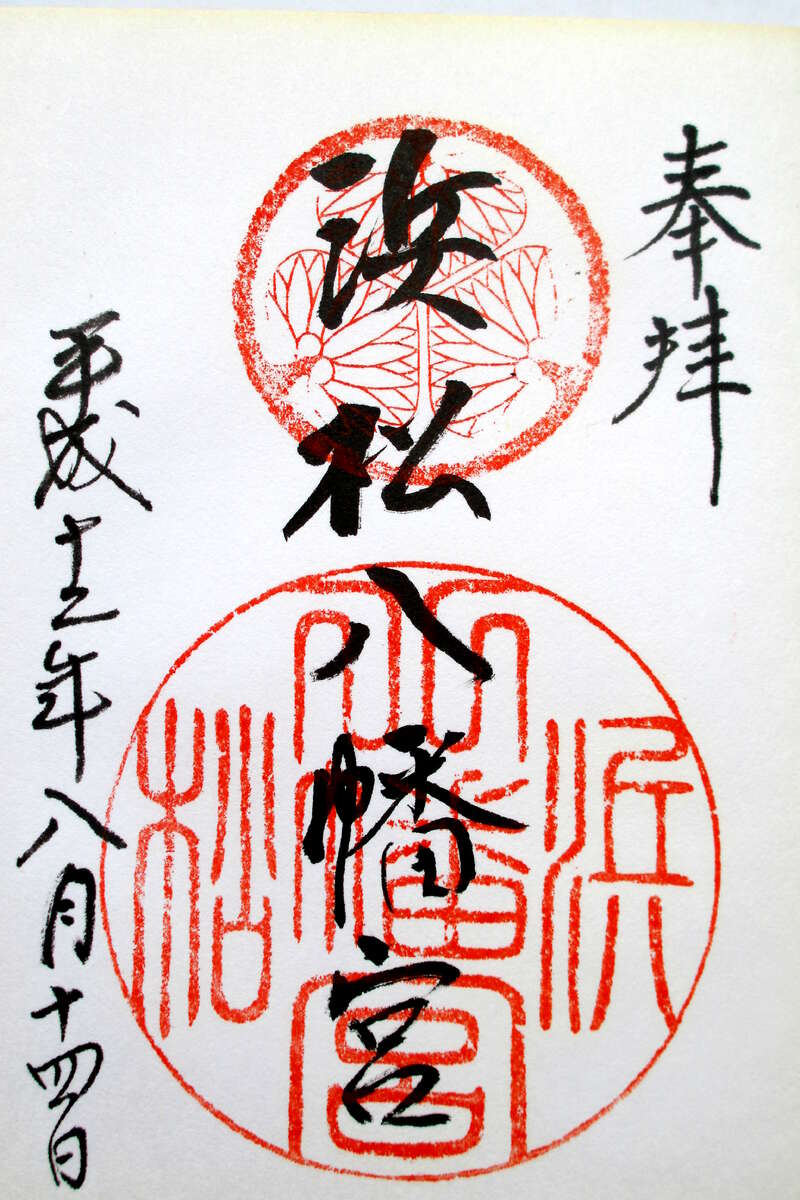 奉拝
浜松八幡宮
平成十二年八月十四日
浜
八幡宮
松